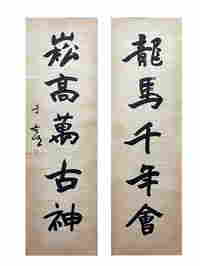 龍馬千年會
崧高萬古神